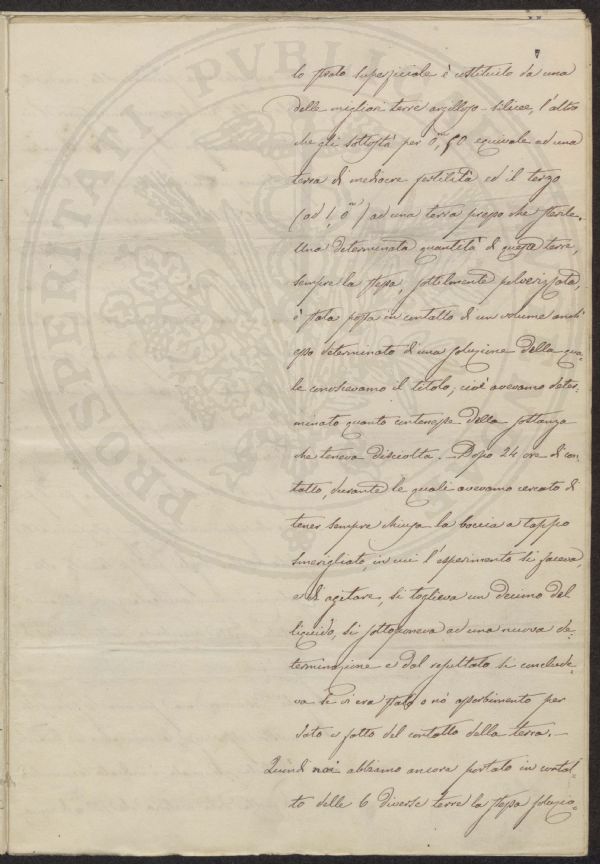 7
lo strato superficiale è costituito da una
delle migliori terre argilloso-silicee, l'altro
che gli sottostà per 0,m50 equivale ad una
terra di mediocre fertilità ed il terzo
(ad 1,m0) ad una terra presso che sterile.
Una determinata quantità di questa terre,
sempre la stessa, sottilmente polverizzata,
è stata posta in contatto di un volume anch'
esso determinato di una soluzione della qua-
le conoscevamo il titolo, cioè avevamo deter-
minato quanto contenesse della sostanza
che teneva disciolta. - Dopo 24 ore di con-
tatto, durante le quali avevamo cercato di
tener sempre chiusa la boccia a tappo
smerigliato, in cui l'esperimento si faceva,
e di agitare, si toglieva un decimo del
liquido, si sottoponeva ad una nuova de-
terminazione e dal resultato si conclude-
va se vi era stato o nò assorbimento per
dato e fatto del contatto della terra. -
Quindi noi abbiamo ancora portato in contat-
to delle 6 diverse terre la stessa soluzio-
PROSPERITATI PVBLICAE